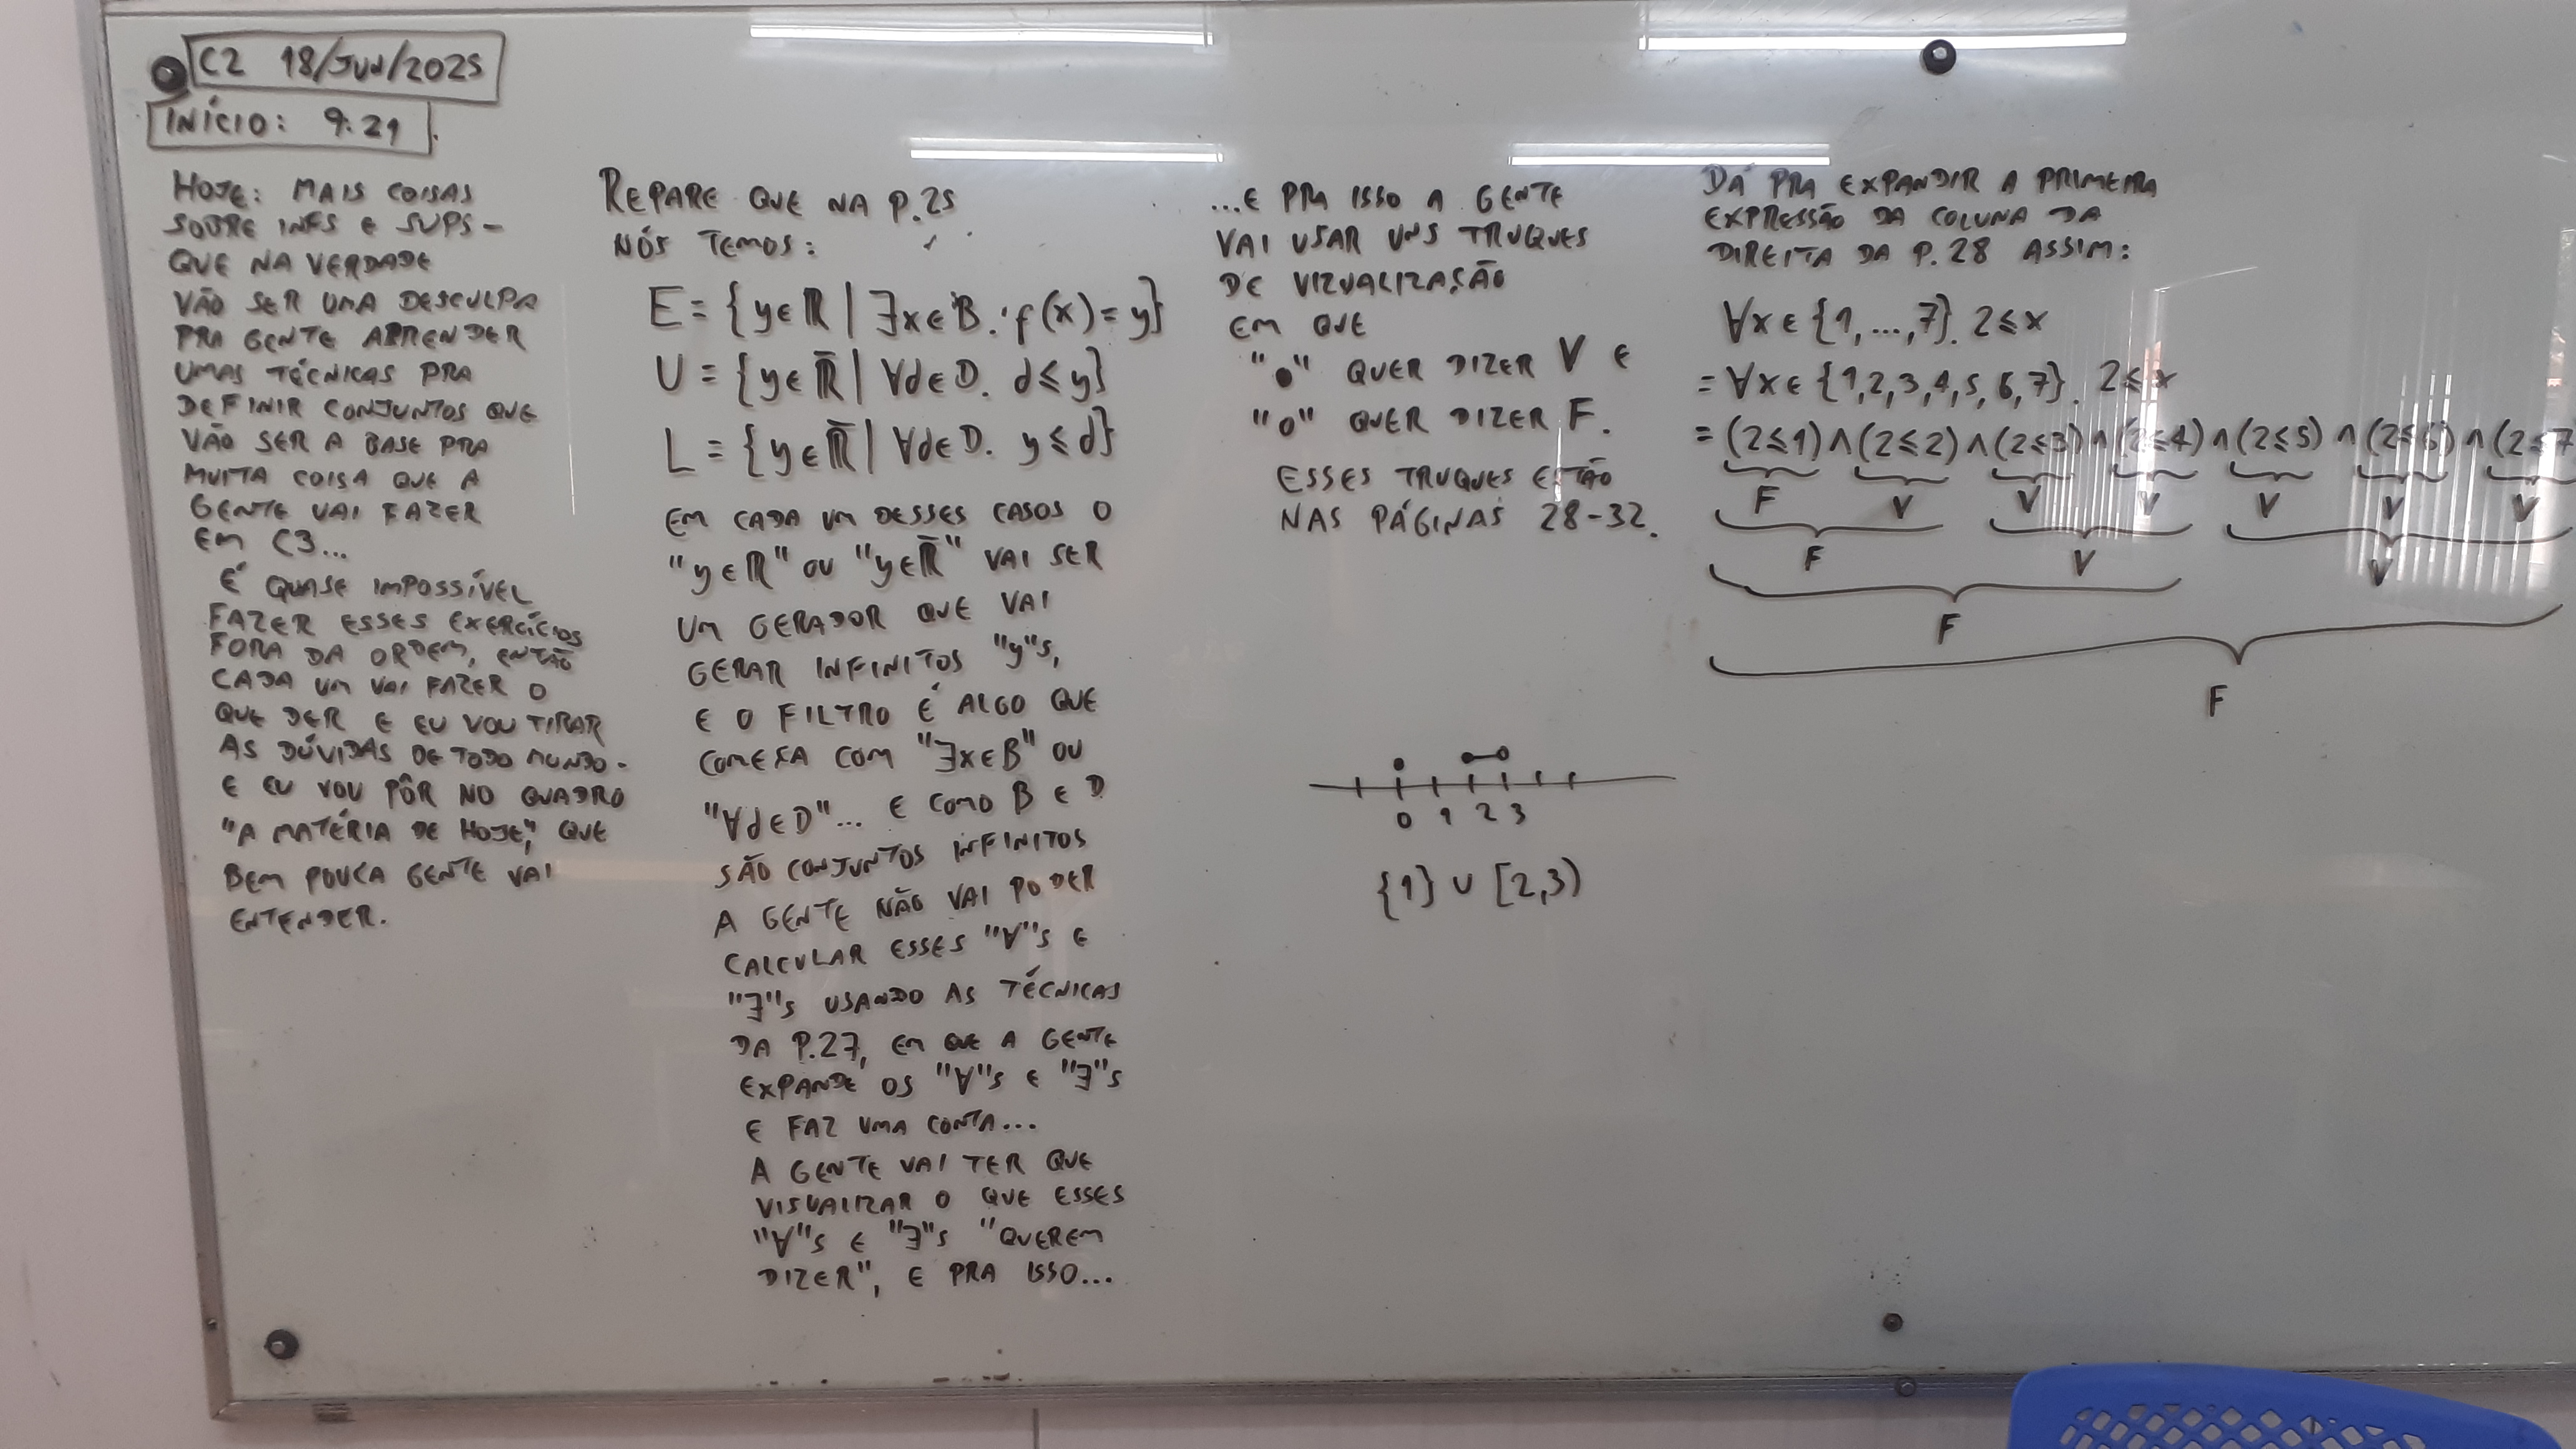 C2 18/JUN/2025
INÍCIO: 9:21
HOJE: MAIS COISAS
SOBRE INFS E SUPS –
QUE NA VERDADE
VÃO SER UMA DESCULPA
PRA GENTE APRENDER
UMAS TÉCNICAS PRA
DEFINIR CONJUNTOS QUE
VÃO SER A BASE PRA
MUITA COISA QUE A
GENTE VAI FAZER
EM C3...
É QUASE IMPOSSÍVEL
FAZER ESSES EXERCÍCIOS
FORA DA ORDEM, ENTÃO
CADA UM VAI FAZER O
QUE DER E EU VOU TIRAR
AS DÚVIDAS DE TODO MUNDO –
E EU VOU PÔR NO QUADRO
"A MATÉRIA DE HOJE", QUE
BEM POUCA GENTE VAI
ENTENDER.
REPARE QUE NA P.25
NÓS TEMOS:
E = {y∈ℝ | ∃x∈B. f(x)=y}
U = {y∈ℝ̄ | ∀d∈D. d≤y}
L = {y∈ℝ̄ | ∀d∈D. y≤d}
EM CADA UM DESSES CASOS O
"y∈ℝ" OU "y∈ℝ̄" VAI SER
UM GERADOR QUE VAI
GERAR INFINITOS "y"s,
E O FILTRO É ALGO QUE
COMEÇA COM "∃x∈B" OU
"∀d∈D"... E COMO B E D
SÃO CONJUNTOS INFINITOS
A GENTE NÃO VAI PODER
CALCULAR ESSES "∀"s E
"∃"s USANDO AS TÉCNICAS
DA P.27, EM QUE A GENTE
EXPANDE OS "∀"s E "∃"s
E FAZ UMA CONTA...
A GENTE VAI TER QUE
VISUALIZAR O QUE ESSES
"∀"s E "∃"s "QUEREM
DIZER", E PRA ISSO...
...E PRA ISSO A GENTE
VAI USAR UNS TRUQUES
DE VIZUALIZAÇÃO
EM QUE
"●" QUER DIZER V E
"○" QUER DIZER F.
ESSES TRUQUES ESTÃO
NAS PÁGINAS 28-32.
0 1 2 3
{1} ∪ [2,3)
DÁ PRA EXPANDIR A PRIMEIRA
EXPRESSÃO DA COLUNA DA
DIREITA DA P.28 ASSIM:
∀x∈{1,...,7}. 2≤x
= ∀x∈{1,2,3,4,5,6,7}. 2≤x
= (2≤1)∧(2≤2)∧(2≤3)∧(2≤4)∧(2≤5)∧(2≤6)∧(2≤7
F V V V V V V
F V V
F
F